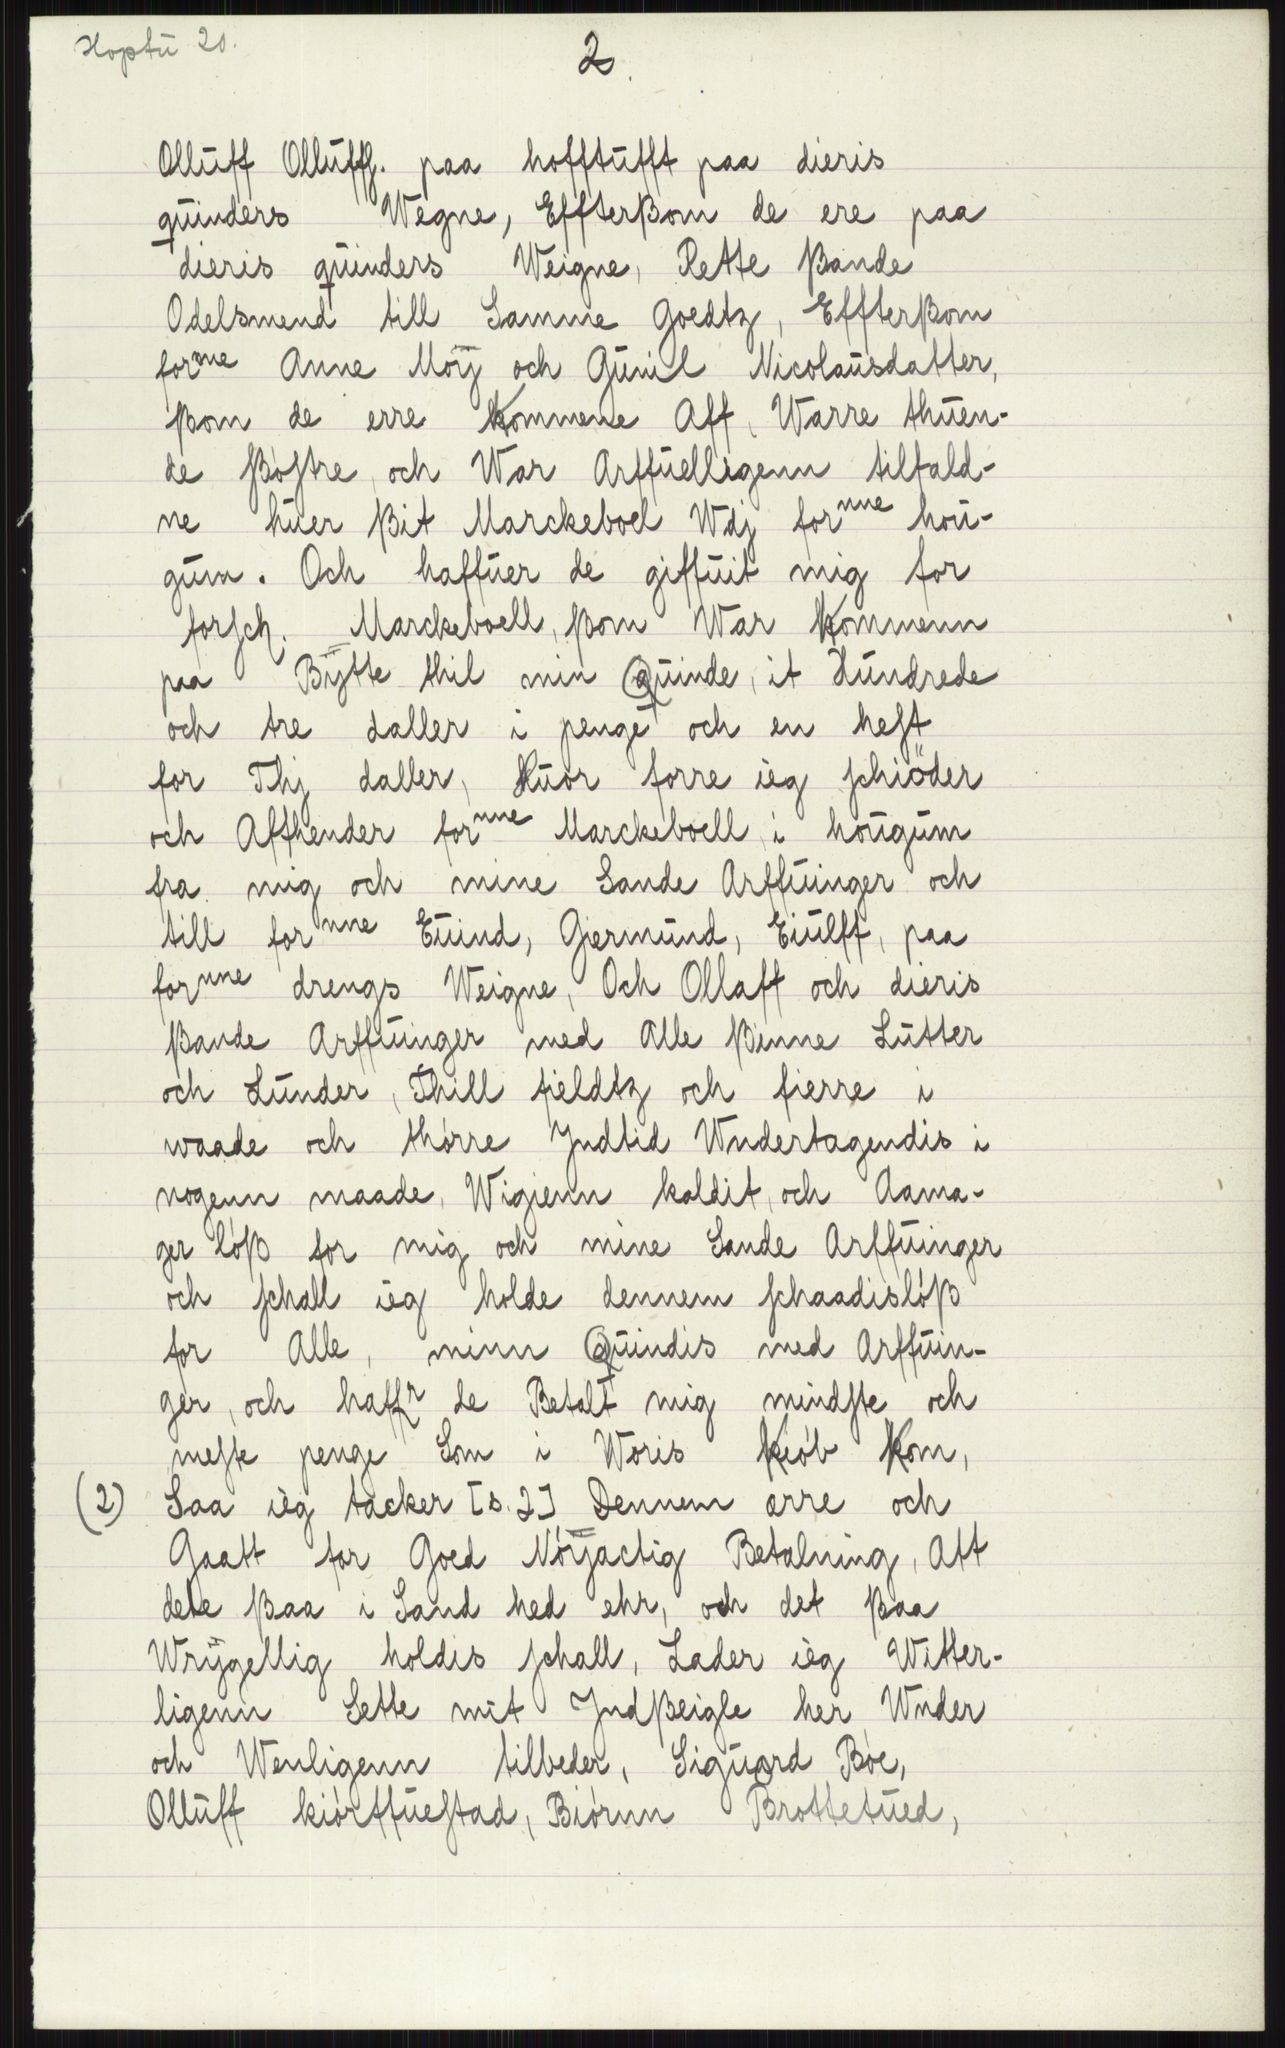 Hoptu 20.
2.
Olluff Olluffß. paa hofftufft paa dieris
quinders Wegne, Effterßom de ere paa
dieris quinders Weigne, Rette ßande
Odelsmend till Samme Goedtz, Effterßom
forme Anne Moÿ och Gunil Nicolausdatter,
ßom de erre Kommene Aff, Warre thuen-
de ßøstre, och War Arffuelligenn tilfald-
ne huer ßit Marckeboel Wdj fornne hou-
gum. Och haffuer de giffuit mig for
forsch. Marckeboell, ßom War Kommenn
paa Bÿtte thil min Quinde, it Hundrede
och tre daller i penge och en hest
for Thj daller, Huor forre ieg schiöder
och Affhender fornne Marckeboell i hougum
fra mig och mine Sande Arffuinger och
till fornne Euind, Giermund, Eiulff, paa
fornne drengs Weigne, Och Ollaff och dieris
ßande Arffuinger med Alle ßinne Lutter
och Lunder, Thill fieldtz och fierre i
waade och thørre Jndtid Wndertagendis i
nogenn maade, Wigienn kaldit, och Aama-
ger løß for mig och mine Sande Arffuinger
och schall ieg holde dennem schaadisløß
for Alle, minn Quindis med Arffuin-
ger, och haffr de Betalt mig mindste och
meste penge Som i Woris Kiøb Kom,
(2) Saa ieg tacker [s. 2] Dennem ærre och
Gaatt for Goed Nøÿactig Betalning, Att
dete ßaa i Sand hed ehr, och det ßaa
Wrÿgellig holdis schall, Lader ieg Witter-
ligenn Sette mit Jndßeigle her Wnder
och Wenligenn tilbeder, Siguord Bøe,
Olluff kiørffuestad, Biørnn Brottetued,